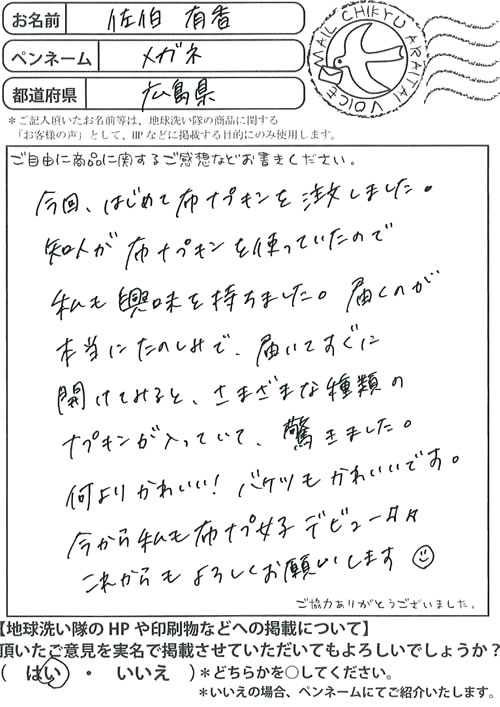 お名前 佐伯 有香
ペンネーム メガネ
都道府県 広島県
MAIL CHIKYU ARAITAI VOICE
*ご記入頂いたお名前等は、地球洗い隊の商品に関する
「お客様の声」として、HPなどに掲載する目的にのみ使用します。
ご自由に商品に関するご感想などお書きください。
今回、はじめて布ナプキンを注文しました。
知人が布ナプキンを使っていたので
私も興味を持ちました。届くのが
本当にたのしみで、届いてすぐに
開けてみると、さまざまな種類の
ナプキンが入っていて、驚きました。
何よりかわいい!バケツもかわいいです。
今から私も布ナプ女子デビュー
これからもよろしくお願いします
ご協力ありがとうございました。
【地球洗い隊のHPや印刷物などへの掲載について】
頂いたご意見を実名で掲載させていただいてもよろしいでしょうか?
( はい ・ いいえ )*どちらかを○してください。
*いいえの場合、ペンネームにてご紹介いたします。